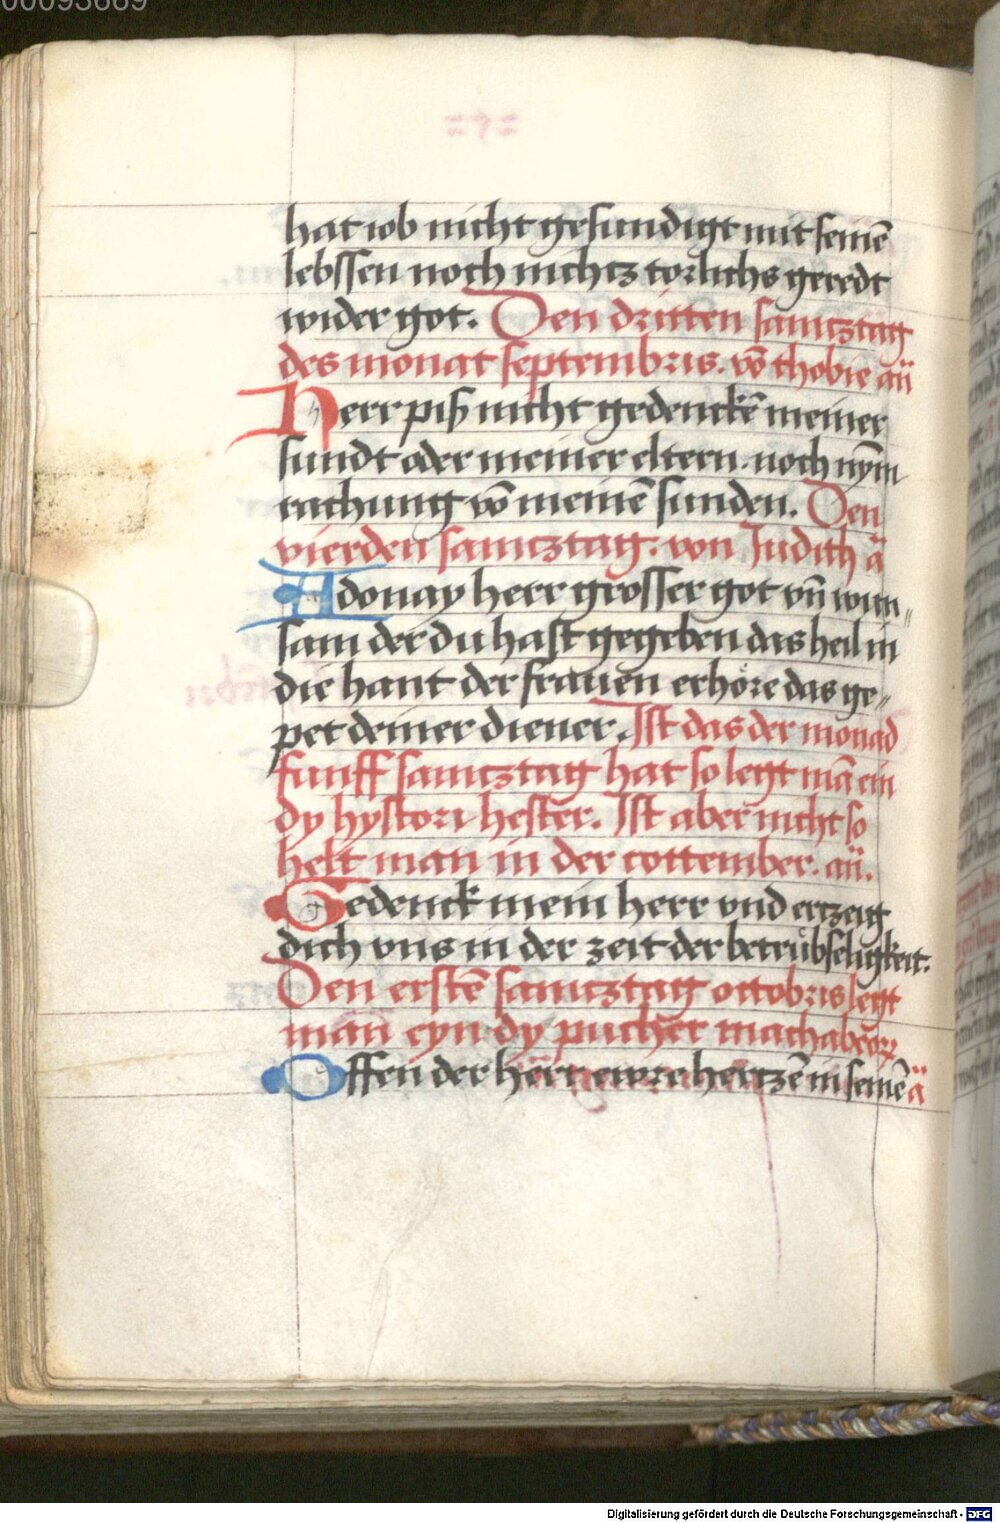 00093669
hat iob nicht gesundigt mit seinē
lebssen noch nichtz torlichs geredt
wider got. Den dritten samtztag
des monat septembris. vō thobie añ
Herr piß nicht gedenckē meiner
sundt oder meiner eltern. noch nȳm
rachung vō meinē sunden. Den
vierden samtztag. von Judith ā
Adonay herr grosser got vñ wun„
sam der du hast gegeben das heil in
die hant der frauen erhöre das ge„
pet deiner diener. Ist das der monad
funff samtztag hat so legt mā ein
dy hystori hester. Ist aber nicht so
helt man in der cottember. añ.
Gedenck mein herr vnd ertzeig
dich vns in der zeit der betrůbseligkeit.
Den erstē samtztag octobris legt
man eyn dy pucher machabeorꝝ
Offen der herr ewre hertzē in seinē ā
Digitalisierung gefördert durch die Deutsche Forschungsgemeinschaft - DFG